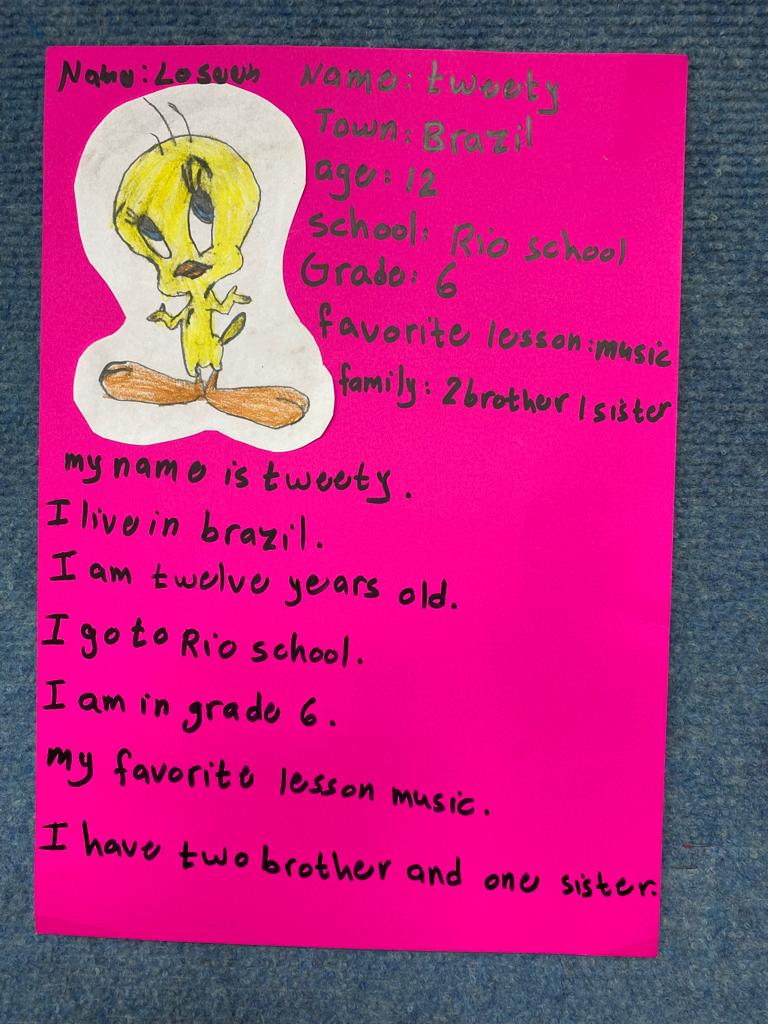 Name:
Name: tweety
Town: Brazil
age: 12
school: Rio school
Grade: 6
favorite lesson: music
family: 2 brother 1 sister
my name is tweety.
I live in brazil.
I am twelve years old.
I go to Rio school.
I am in grade 6.
my favorite lesson music.
I have two brother and one sister.